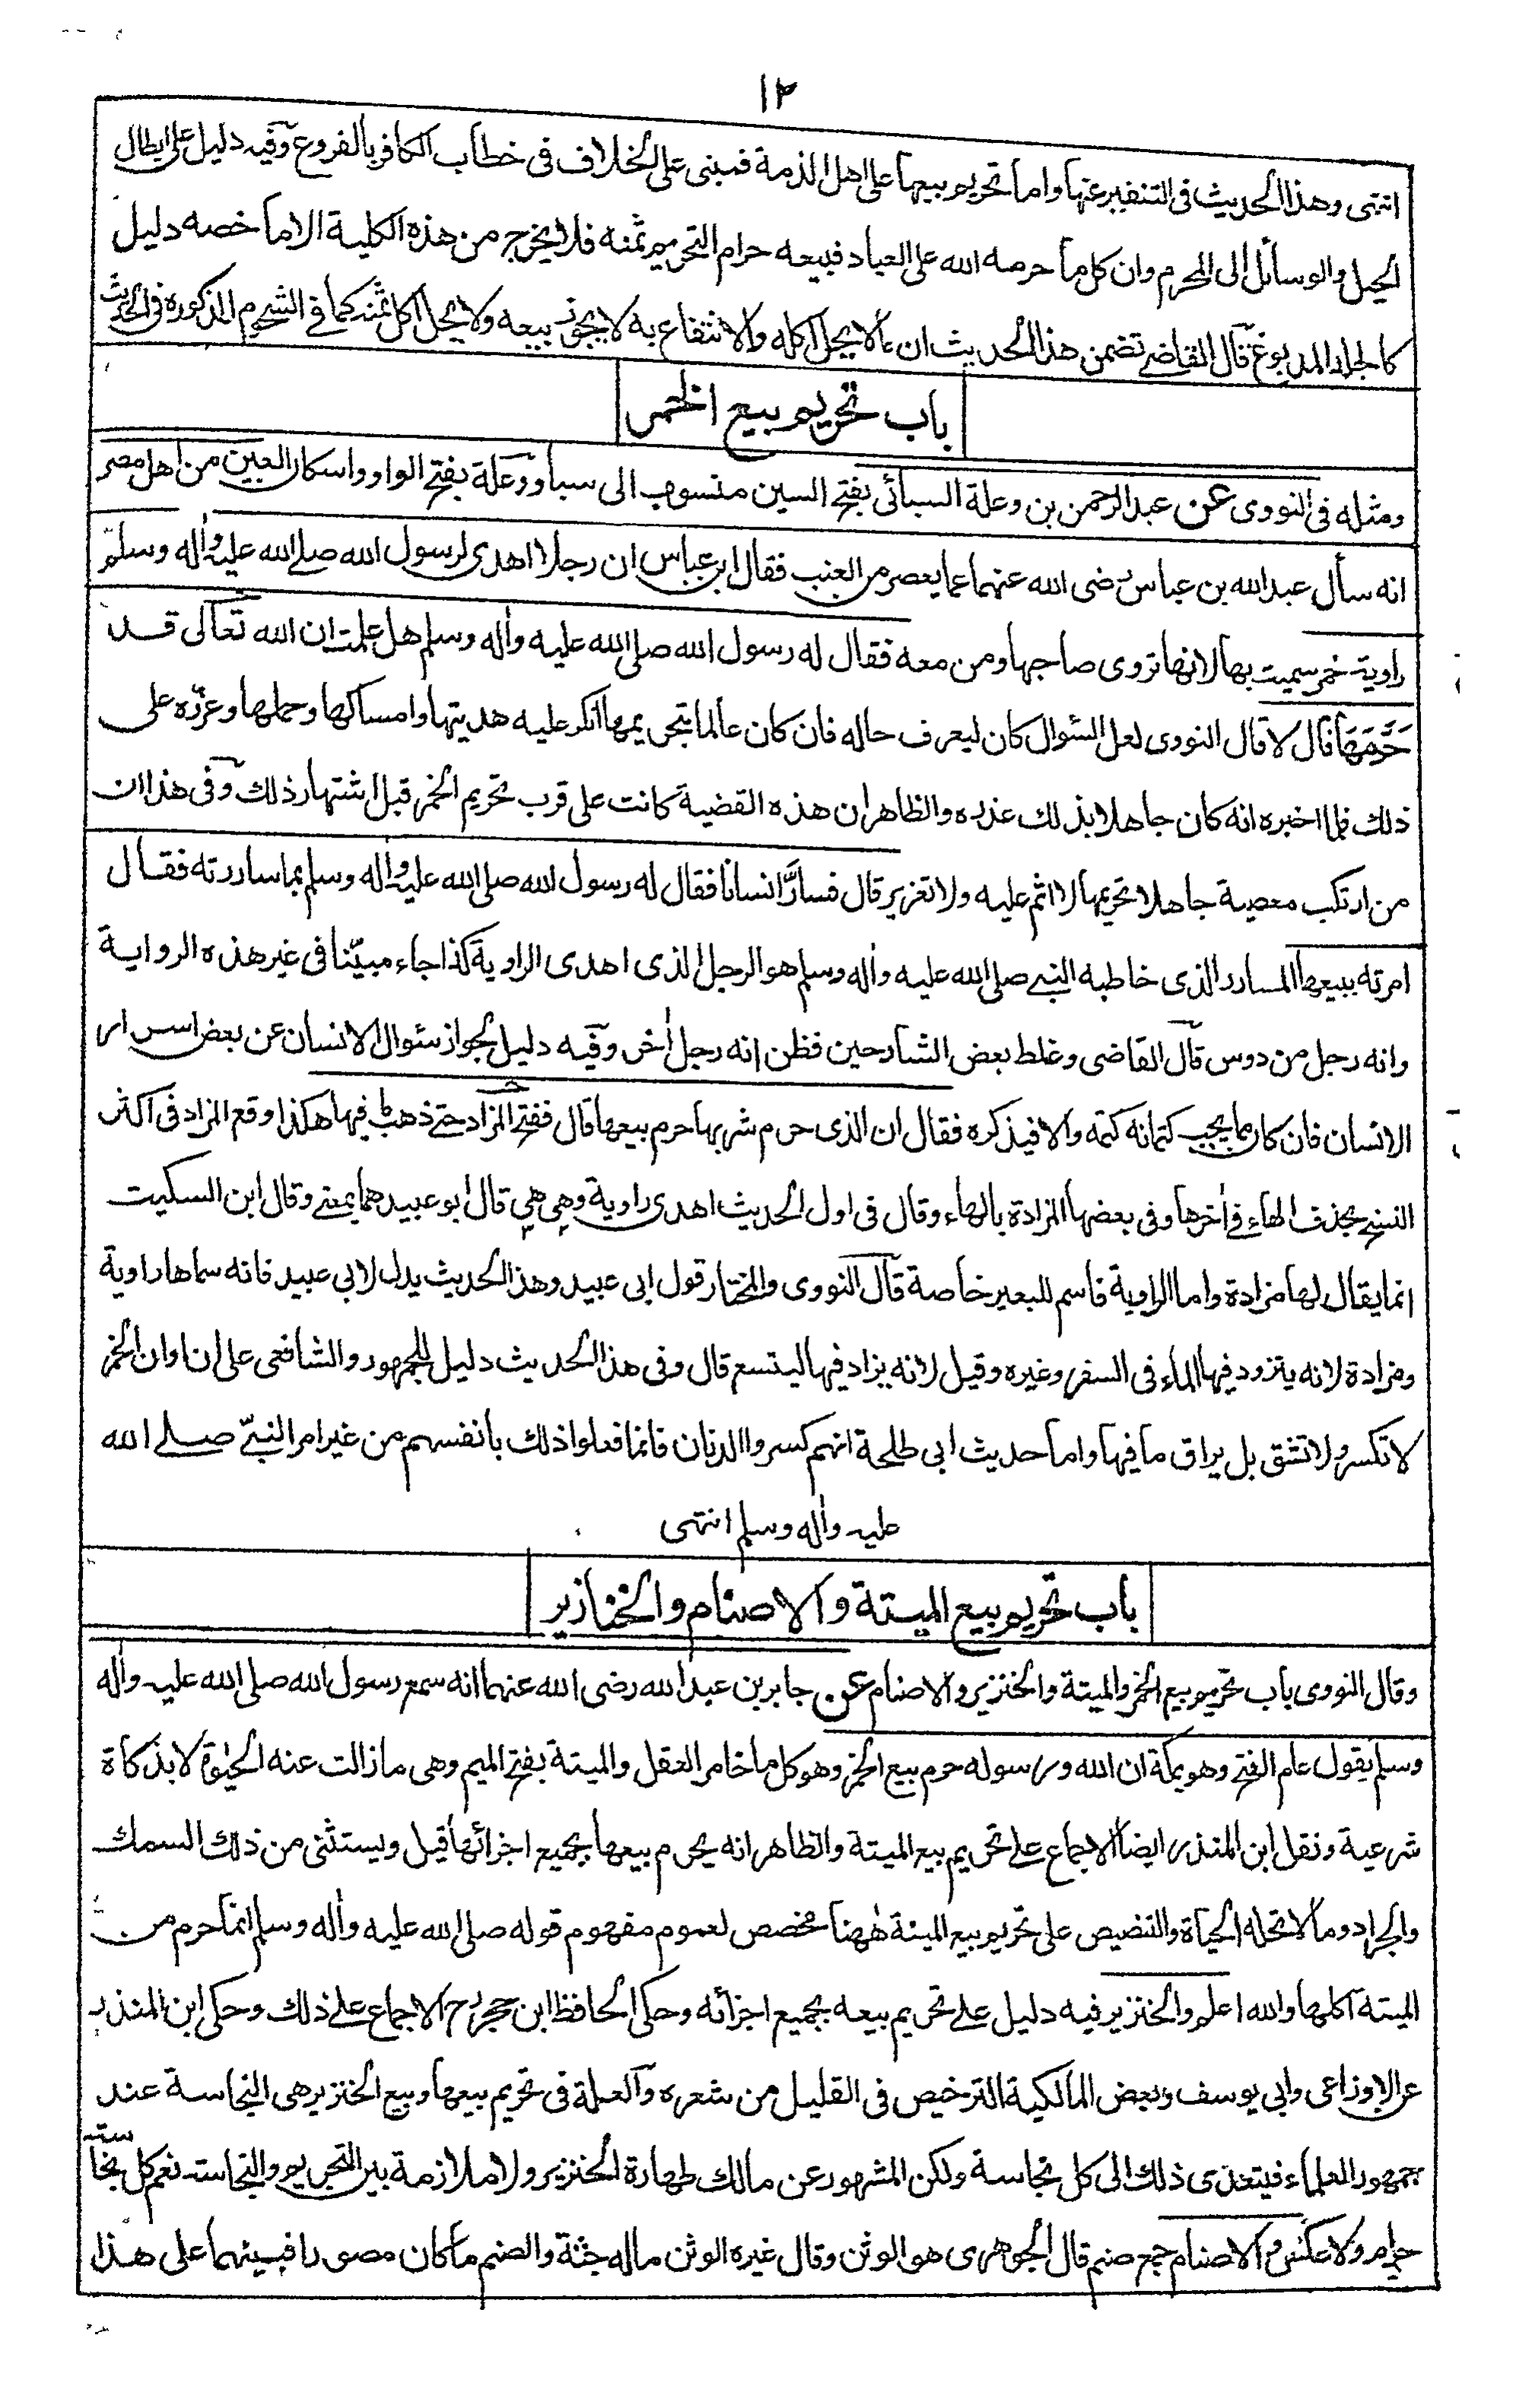 ١٢
انتهى وهذا الحديث فى التنفير عنها واما تحريم بيعها على اهل الذمة فمبنى على الخلاف فى خطاب الكافر بالفروع وفيه دليل على ابطال
الحيل والوسائل الى المحرم وان كل ما حرمه الله على العباد فبيعه حرام التحريم ثمنه فلا يخرج من هذه الكلية الا ما خصه دليل
كالجلد المدبوغ قال القاضے تضمن هذا الحديث ان ما لا يحل اكله والانتفاع به لا يجوز بيعه ولا يحل اكل ثمنه كما فى الشحوم المذكورة فى الحديث
باب تحريم بيع الخمر
ومثله فى النووى عن عبد الرحمن بن وعلة السبائى بفتح السين منسوب الى سبأ ووعلة بفتح الواو واسكان العين من اهل مصر
انه سأل عبد الله بن عباس رضى الله عنهما عما يعصر من العنب فقال ابن عباس ان رجلا اهدى لرسول الله صلے الله عليه واٰله وسلم
راوية خمر سميت بها لانها تروى صاحبها ومن معه فقال له رسول الله صلى الله عليه واٰله وسلم هل علمت ان الله تعالى قد
حَرَّمَهَا قال لا قال النووى لعل السؤال كان ليعرف حاله فان كان عالما بتحريمها انكر عليه هديتها وامساكها وحملها وعزّره على
ذلك فلما اخبره انه كان جاهلا بذلك عذره والظاهر ان هذه القضية كانت على قرب تحريم الخمر قبل اشتهار ذلك وفى هذا ان
من ارتكب معصية جاهلا تحريمها لا اثم عليه ولا تعزير قال فسارَّ انسانا فقال له رسول الله صلى الله عليه واٰله وسلم بما ساررته فقال
امرته ببيعها المسارر الذى خاطبه النبے صلى الله عليه واٰله وسلم هو الرجل الذى اهدى الراوية كذا جاء مبيّنا فى غير هذه الرواية
وانه رجل من دوس قال القاضى وغلط بعض الشارحين فظن انه رجل اٰخر وفيه دليل لجواز سئوال الانسان عن بعض اسرار
الانسان فان كان مما يجب كتمانه كتمه والا فيذكره فقال ان الذى حرم شربها حرم بيعها قال ففتح المزاد حتے ذهب ما فيها هكذا وقع المزاد فى اكثر
النسخ بحذف الهاء فے اٰخرها وفى بعضها المزادة بالهاء وقال فى اول الحديث اهدى راوية وهى هى قال ابو عبيد هما بمعنے وقال ابن السكيت
انما يقال لها مزادة واما الراوية فاسم للبعير خاصة قال النووى والمختار قول ابى عبيد وهذا الحديث يدل لابى عبيد فانه سماها راوية
ومزادة لانه يتزود فيها الماء فى السفر وغيره وقيل لانه يزاد فيها ليتسع قال وفى هذا الحديث دليل للجمهور والشافعى على ان اوان الخمر
لا تكسر ولا تشق بل يراق ما فيها واما حديث ابى طلحة انهم كسروا الدنان فانما فعلوا ذلك بانفسهم من غير امر النبىّ صلے الله
عليه واٰله وسلم انتهى
باب تحريم بيع الميتة والاصنام والخنازير
وقال النووى باب تحريم بيع الخمر والميتة والخنزير والاصنام عن جابر بن عبد الله رضى الله عنهما انه سمع رسول الله صلى الله عليه واٰله
وسلم يقول عام الفتح وهو بمكة ان الله ورسوله حرم بيع الخمر وهو كل ما خامر العقل والميتة بفتح الميم وهى ما زالت عنه الحيوٰة لا بذكاة
شرعية ونقل ابن المنذر ايضا الاجماع على تحريم بيع الميتة والظاهر انه يحرم بيعها بجميع اجزائها قيل ويستثنى من ذلك السمك
والجراد وما لا تحله الحياة والتنصيص على تحريم بيع الميتة هٰهنا مخصص لعموم مفهوم قوله صلى الله عليه واٰله وسلم انما حرم من
الميتة اكلها والله اعلم والخنزير فيه دليل علے تحريم بيعه بجميع اجزائه وحكى الحافظ ابن حجر رح الاجماع علے ذلك وحكى ابن المنذر
عن الاوزاعى وابى يوسف وبعض المالكية الترخيص فى القليل من شعره والعلة فى تحريم بيعها وبيع الخنزير هى النجاسة عند
جمهور العلماء فيتعدى ذلك الى كل نجاسة ولكن المشهور عن مالك طهارة الخنزير ولا ملازمة بين التحريم والنجاسة نعم كل نجاسة
حرام ولا عكس والاصنام جمع صنم قال الجوهرى هو الوثن وقال غيره الوثن ما له جثة والصنم ما كان مصورا فبينهما على هذا